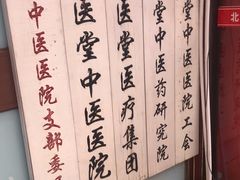 中医医院支部委
医堂中医医院
医堂中医医疗集团
医堂中医药研究院
中医医院工会
北